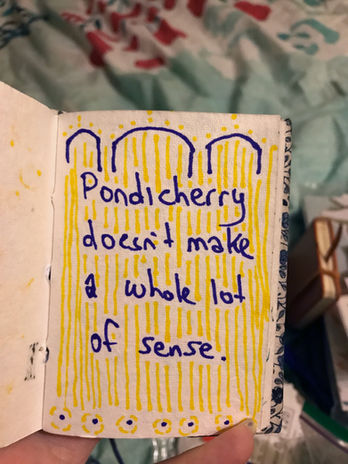 Pondicherry
doesn't make
a whole lot
of sense.